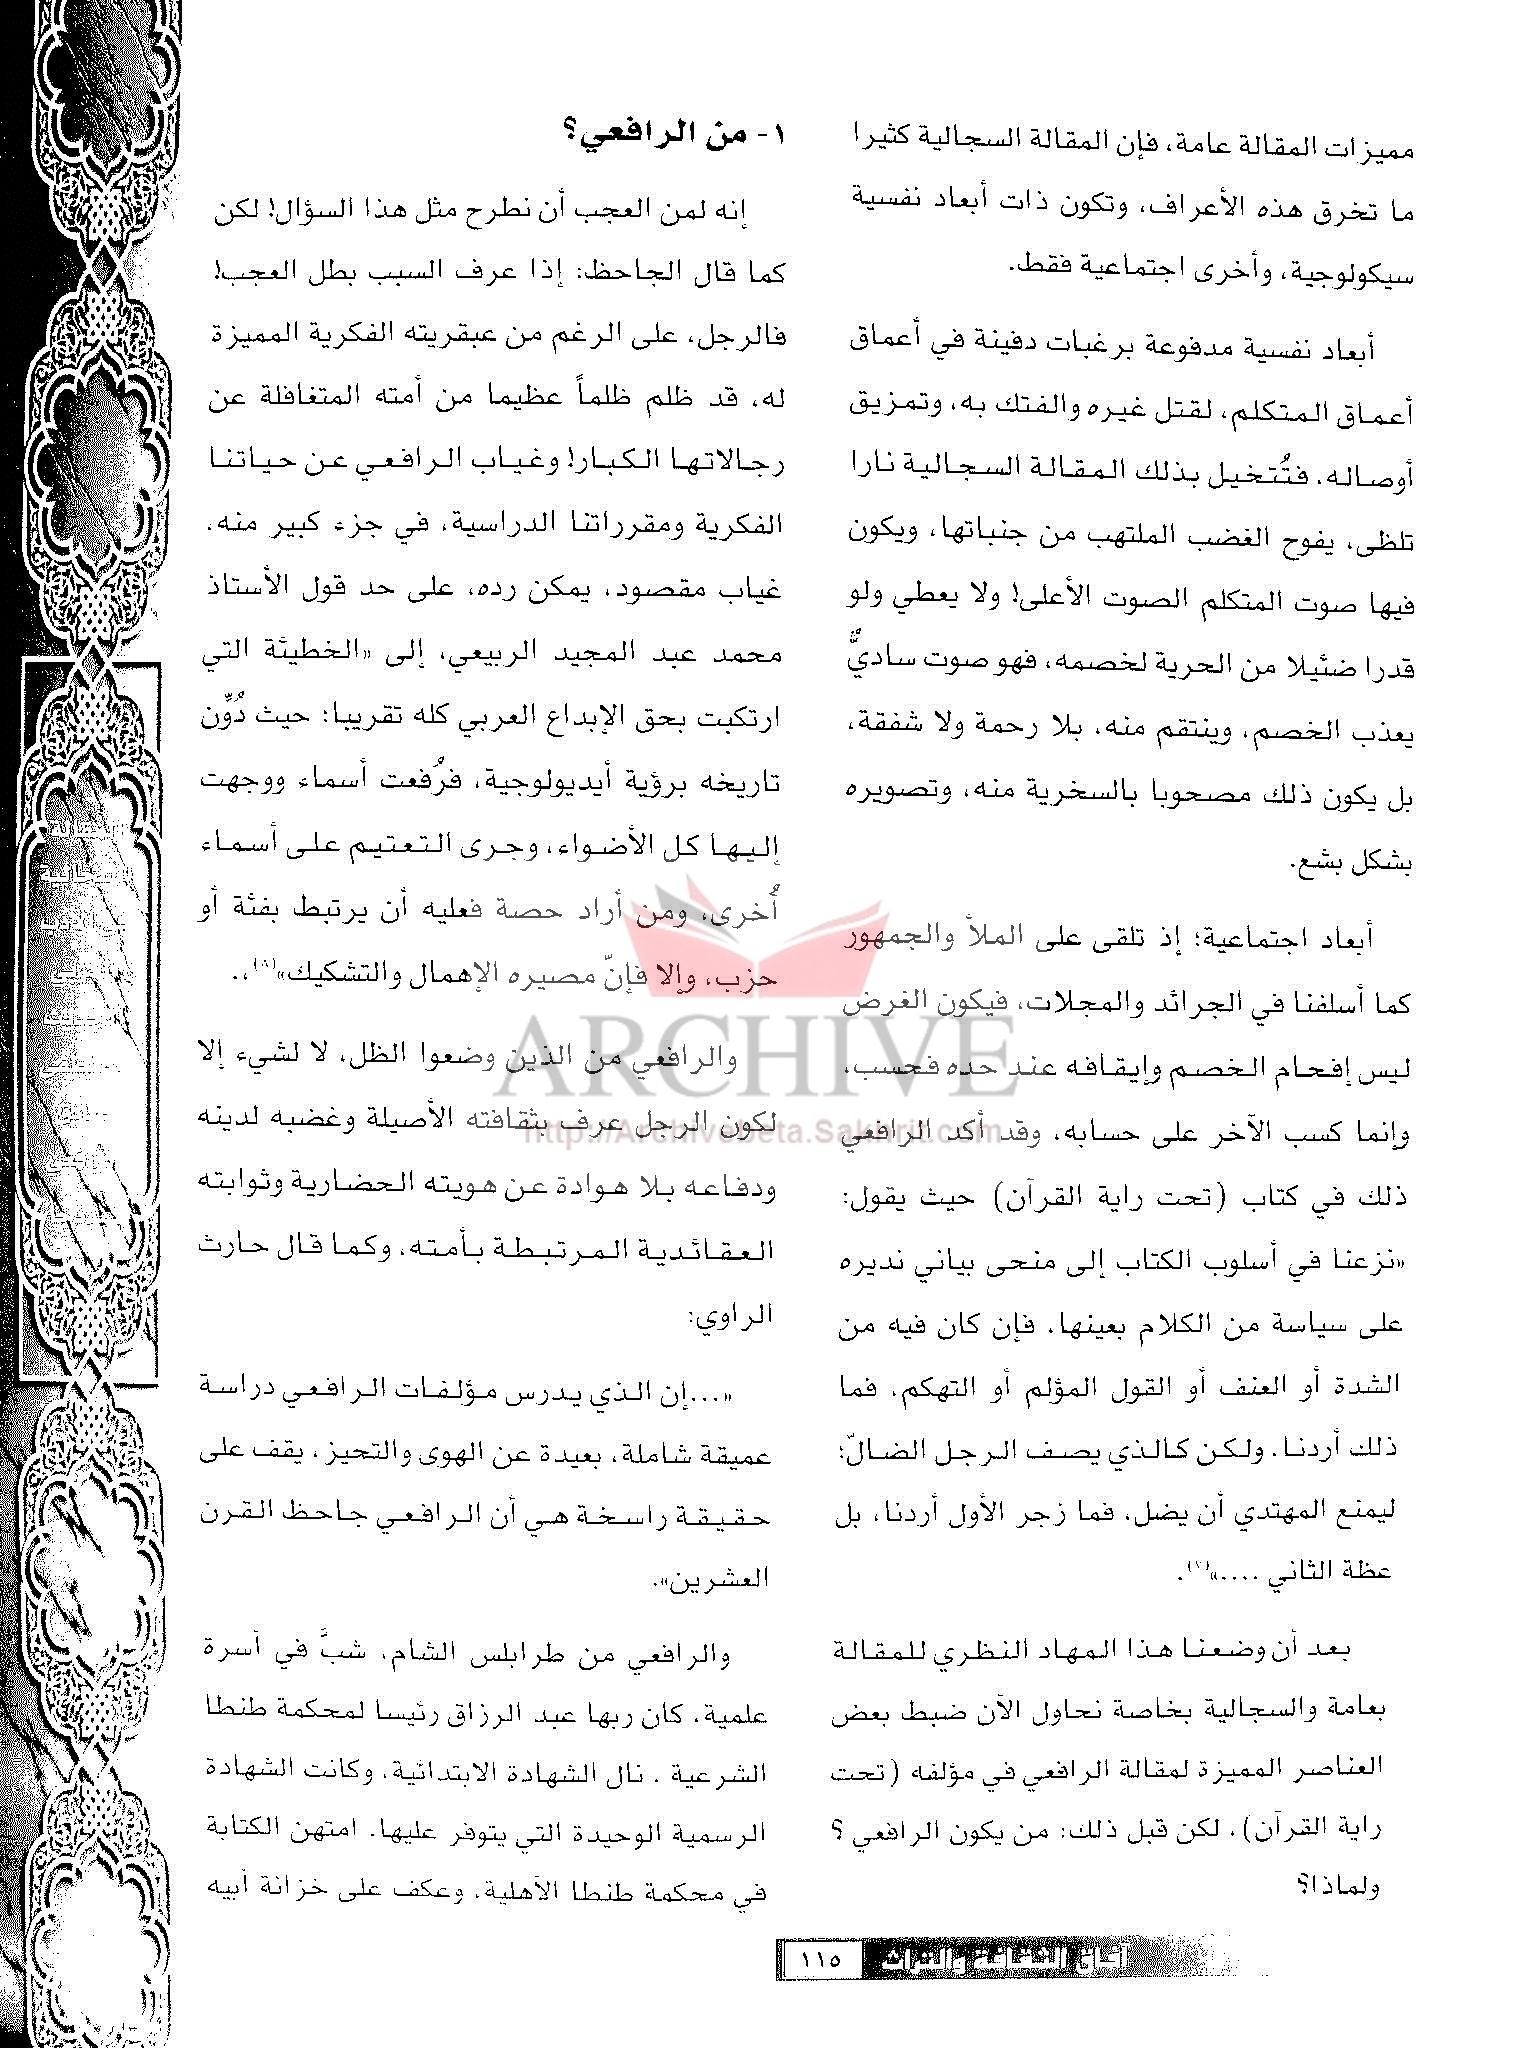 مميزات المقالة عامة، فإن المقالة السجالية كثيرا
ما تخرق هذه الأعراف، وتكون ذات أبعاد نفسية
سيكولوجية، وأخرى اجتماعية فقط.
أبعاد نفسية مدفوعة برغبات دفينة في أعماق
أعماق المتكلم، لقتل غيره والفتك به، وتمزيق
أوصاله. فتُتخيل بذلك المقالة السجالية نارا
تلظى، يفوح الغضب الملتهب من جنباتها، ويكون
فيها صوت المتكلم الصوت الأعلى! ولا يعطي ولو
قدرا ضئيلا من الحرية لخصمه، فهو صوت ساديٌّ
يعذب الخصم، وينتقم منه، بلا رحمة ولا شفقة،
بل يكون ذلك مصحوبا بالسخرية منه، وتصويره
بشكل بشع.
أبعاد اجتماعية؛ إذ تلقى على الملأ والجمهور
كما أسلفنا في الجرائد والمجلات، فيكون الغرض
ليس إفحام الخصم وإيقافه عند حده فحسب،
وإنما كسب الآخر على حسابه، وقد أكد الرافعي
ذلك في كتاب (تحت راية القرآن) حيث يقول:
«نزعنا في أسلوب الكتاب إلى منحى بياني نديره
على سياسة من الكلام بعينها، فإن كان فيه من
الشدة أو العنف أو القول المؤلم أو التهكم، فما
ذلك أردنا. ولكن كالذي يصف الرجل الضالّ؛
ليمنع المهتدي أن يضل، فما زجر الأول أردنا، بل
عظة الثاني ....»(٧).
بعد أن وضعنا هذا المهاد النظري للمقالة
بعامة والسجالية بخاصة نحاول الآن ضبط بعض
العناصر المميزة لمقالة الرافعي في مؤلفه (تحت
راية القرآن)، لكن قبل ذلك: من يكون الرافعي ؟
ولماذا؟
١- من الرافعي؟
إنه لمن العجب أن نطرح مثل هذا السؤال! لكن
كما قال الجاحظ: إذا عرف السبب بطل العجب!
فالرجل، على الرغم من عبقريته الفكرية المميزة
له، قد ظلم ظلماً عظيما من أمته المتغافلة عن
رجالاتها الكبار! وغياب الرافعي عن حياتنا
الفكرية ومقرراتنا الدراسية، في جزء كبير منه،
غياب مقصود، يمكن رده، على حد قول الأستاذ
محمد عبد المجيد الربيعي، إلى «الخطيئة التي
ارتكبت بحق الإبداع العربي كله تقريبا؛ حيث دُوِّن
تاريخه برؤية أيديولوجية، فرُفعت أسماء ووجهت
إليها كل الأضواء، وجرى التعتيم على أسماء
أُخرى، ومن أراد حصة فعليه أن يرتبط بفئة أو
حزب، وإلا فإنّ مصيره الإهمال والتشكيك»(٨)،.
والرافعي من الذين وضعوا الظل، لا لشيء إلا
لكون الرجل عرف بثقافته الأصيلة وغضبه لدينه
ودفاعه بلا هوادة عن هويته الحضارية وثوابته
العقائدية المرتبطة بأمته، وكما قال حارث
الراوي:
«...إن الذي يدرس مؤلفات الرافعي دراسة
عميقة شاملة، بعيدة عن الهوى والتحيز، يقف على
حقيقة راسخة هي أن الرافعي جاحظ القرن
العشرين».
والرافعي من طرابلس الشام، شبَّ في أسرة
علمية، كان ربها عبد الرزاق رئيسا لمحكمة طنطا
الشرعية . نال الشهادة الابتدائية، وكانت الشهادة
الرسمية الوحيدة التي يتوفر عليها. امتهن الكتابة
في محكمة طنطا الأهلية، وعكف على خزانة أبيه
آفاق الثقافة والتراث ١١٥
ARCHIVE
http://Archivebeta.Sakhrit.com